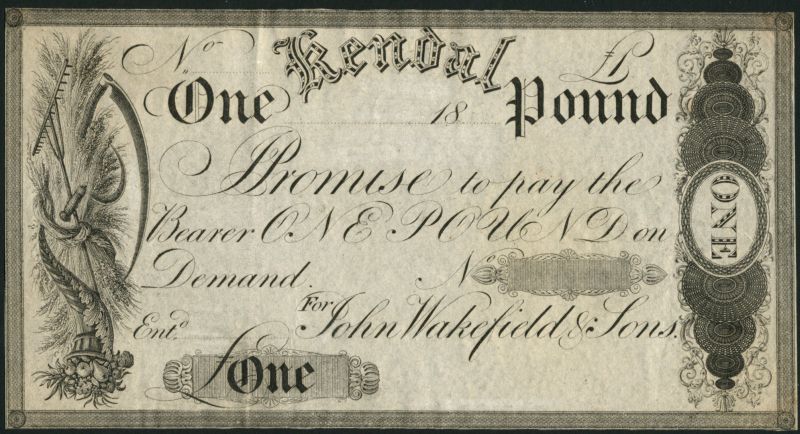 Kendal
No £1
One 18 Pound
I Promise to pay the
Bearer ONE POUND on
Demand. No
For John Wakefield & Sons.
Entd.
£One
ONE